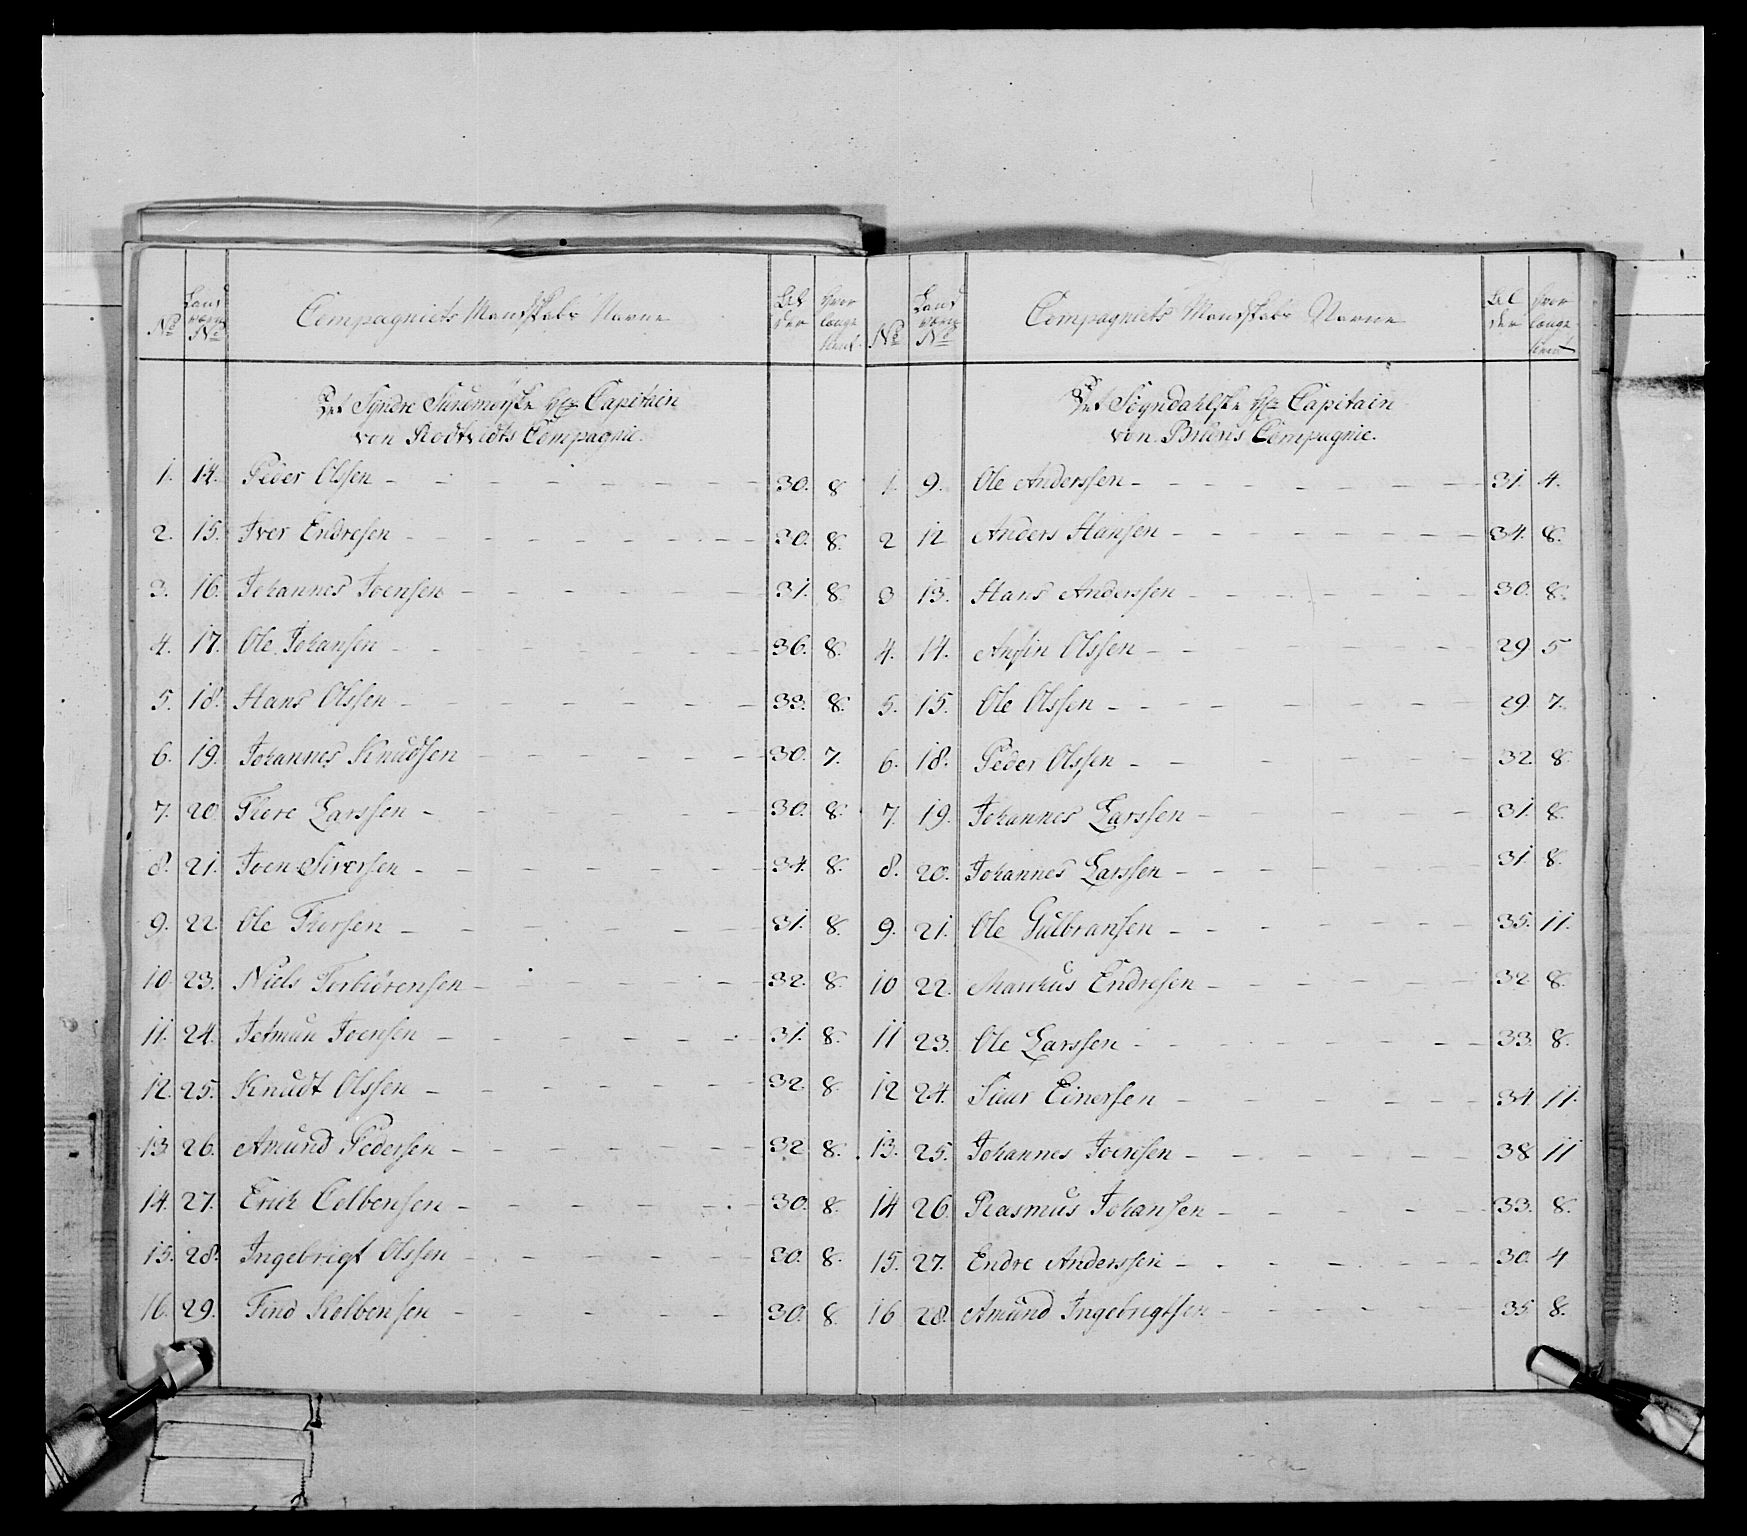 No
Land
værns
No
Compagniets Mandskabs Navne
Al
der
Hvor
længe
tient
Det Syndre Sundmørske Capitain
von Compagnie.
1. 14. Peder Olssen 30. 8
2. 15. Iver Endresen 30. 8.
3. 16. Johannes Joensen 31. 8.
4. 17. Ole Johansen 36. 8.
5. 18. Hans Olssen 33. 8.
6. 19. Johannes Knudsen 30. 7.
7. 20 Thore Larssen 30. 8.
8. 21. Joen Siverssen 34. 8.
9. 22 Ole Thorsen 31. 8.
10. 23. Niels Torbiörensen 32. 8.
11. 24. Jetmun Joensen 31. 8.
12. 25. Knudt Olssen 32. 8.
13. 26. Amund Pedersen 32 8.
14. 27. Erich Colbensen 30. 8.
15. 28. Ingebrigt Olssen 30. 8.
16. 29. Find Kolbensen 30. 8.
No
Land
værns
No
Compagniets Mandskabs Navne
Al
der
Hvor
længe
tient
Det Sogndahlske Capitain
von Bruns Compagnie.
1. 9. Ole Anderssen 31. 4.
2 12 Anders Hansen 34. 8.
3 13. Hans Anderssen 30. 8.
4. 14. Anfin Olssen 29 5
5. 15. Ole Olssen 29. 7.
6. 18. Peder Olssen 32 8.
7. 19. Johannes Larssen 31. 8.
8. 20. Johannes Larssen 31 8.
9. 21. Ole Gulbransen 35. 11.
10 22. Markus Endresen 32 8.
11 23. Ole Larssen 33. 8.
12 24. Siur Einersen 34 11.
13. 25. Johannes Joensen 38 11
14 26. Rasmus Johansen 33. 8.
15. 27. Endre Anderssen 30. 4
16 28. Amund Ingebrigtsen 35 8.